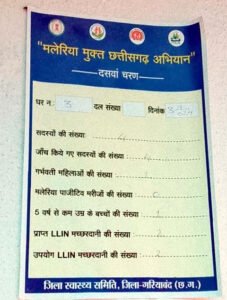 "मलेरिया मुक्त छत्तीसगढ़ अभियान"
दसवां चरण
घर न. 3 दल संख्या दिनांक
सदस्यों की संख्या 4
जाँच किये गए सदस्यों की संख्या
गर्भवती महिलाओं की संख्या
मलेरिया पाजीटिव मरीजों की संख्या
5 वर्ष से कम उम्र के बच्चों की संख्या
प्राप्त LLIN मच्छरदानी की संख्या
उपयोग LLIN मच्छरदानी की संख्या
जिला स्वास्थ्य समिति, जिला-गरियाबंद (छ.ग.)